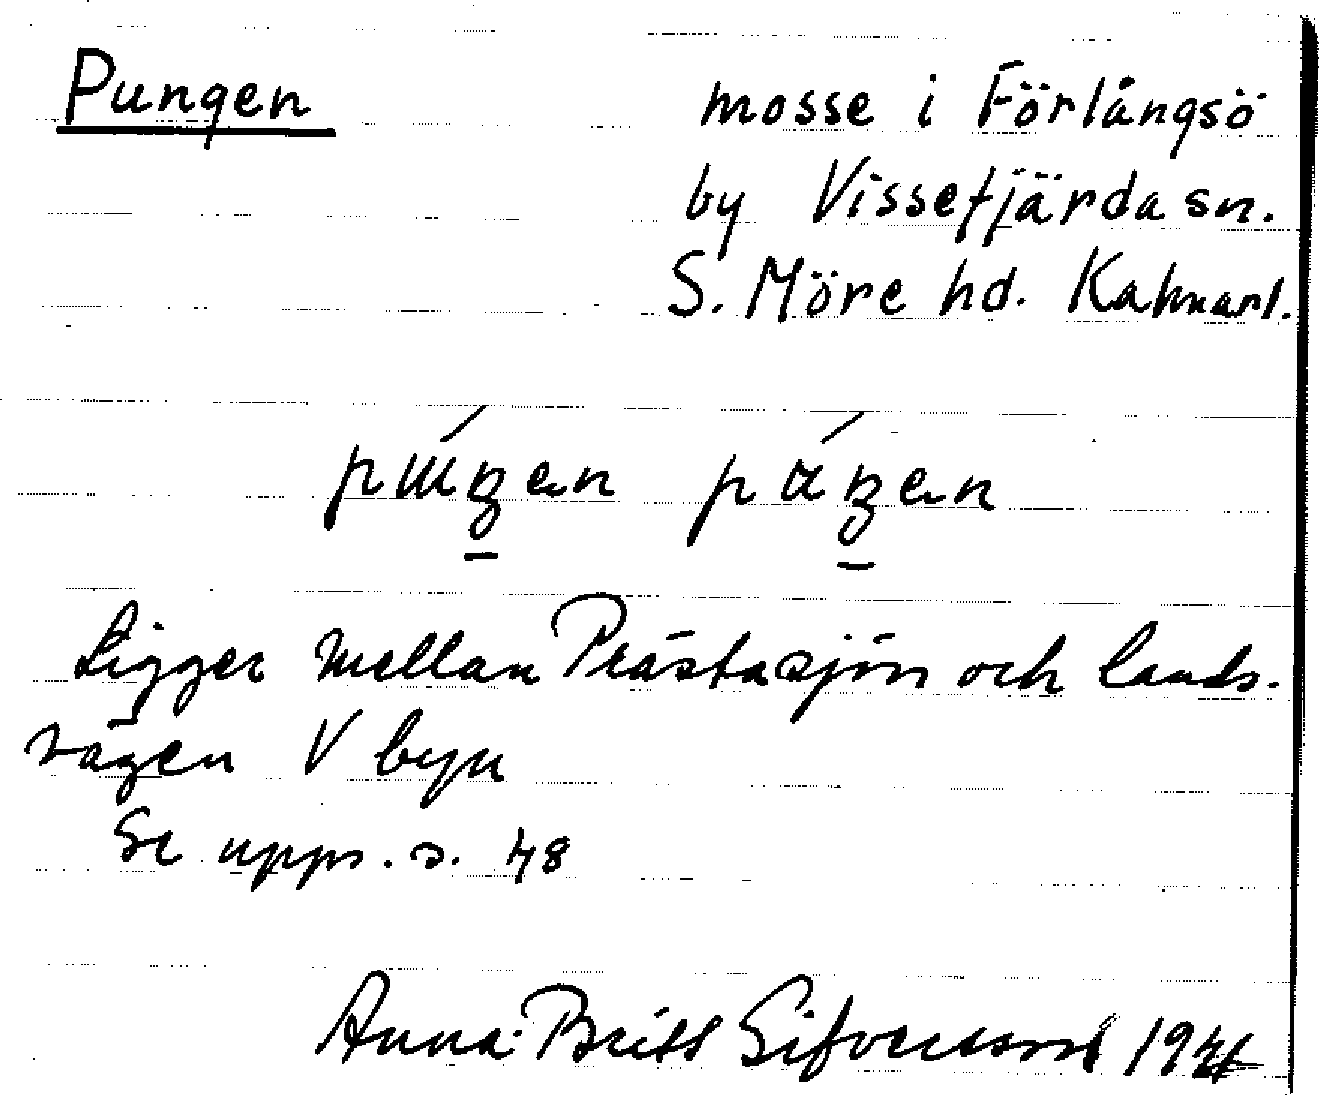 Pungen
mosse i Förlångsö
by Vissefjärda sn.
S. Möre hd. Kalmarl.
Ligger mellan Prästasjön och lands-
vägen V byn
Se upps. s. 48
Anna-Britt Sifvertsson